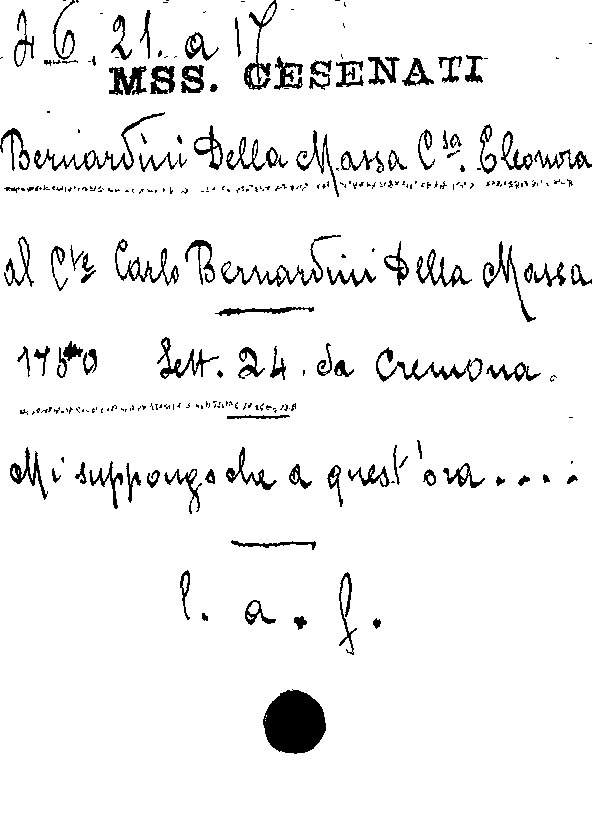 46. 21. a 17.
MSS. CESENATI
Bernardini Della Massa C.sa Eleonora
al C.te Carlo Bernardini Della Massa
1750 Sett. 24. da Cremona.
Mi suppongo che a quest'ora.....
l. a. f.